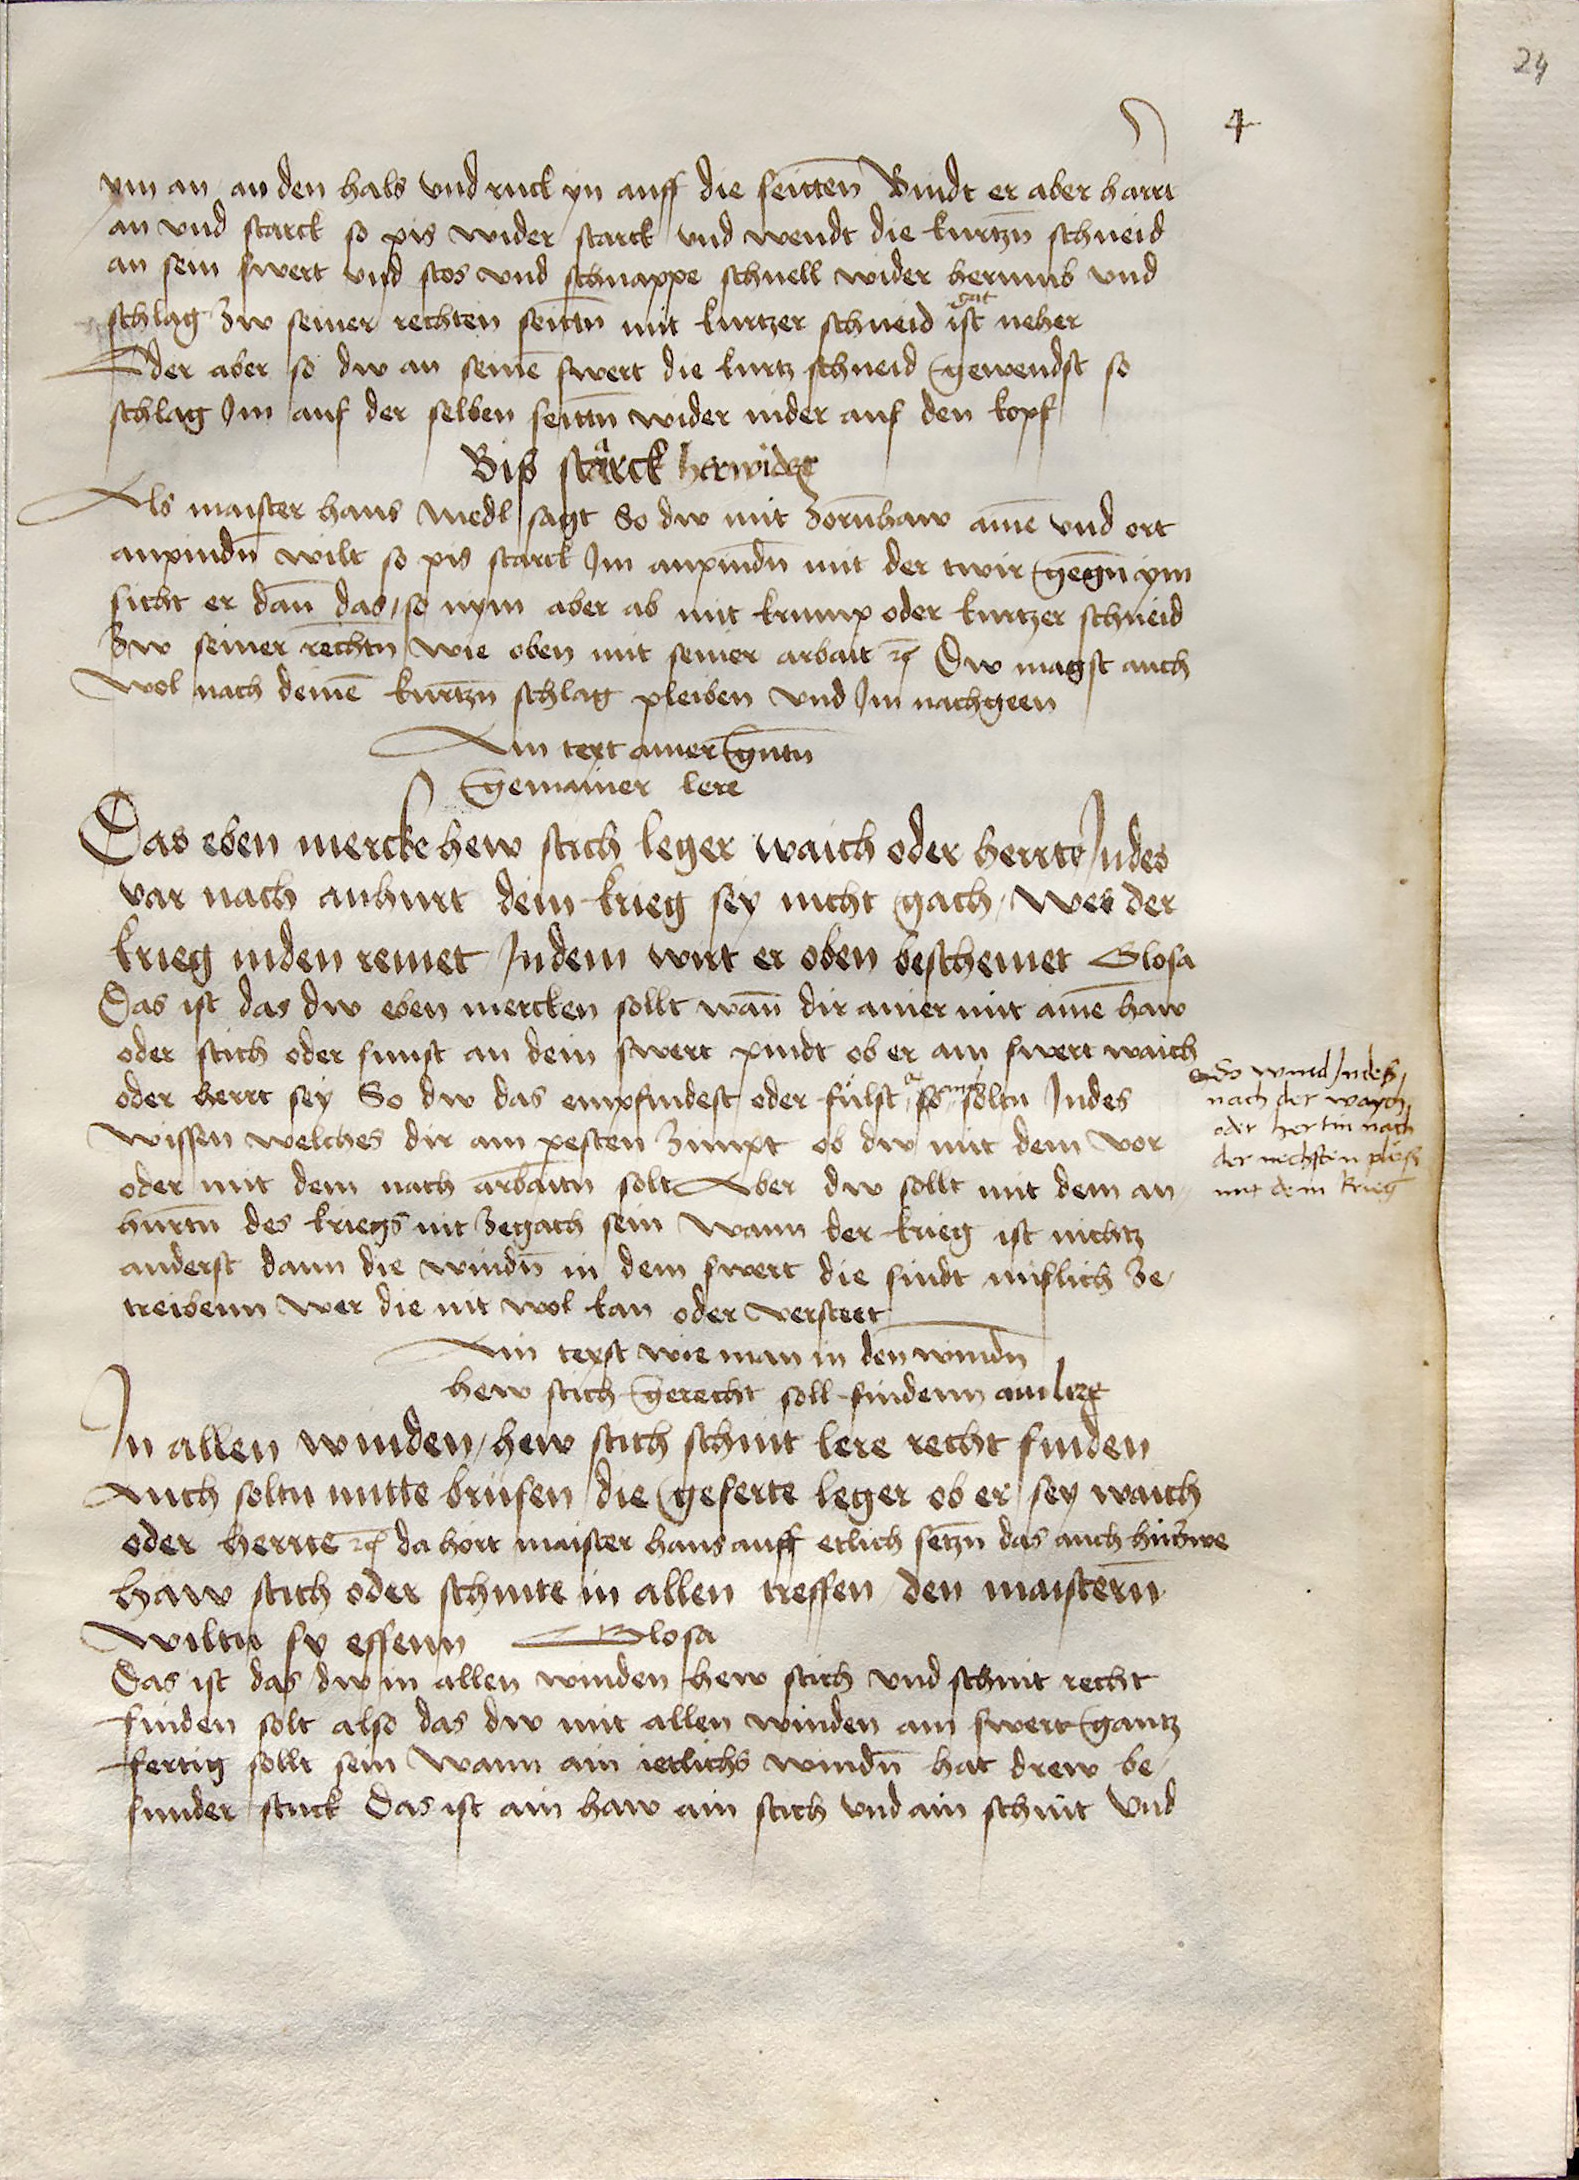 24
4
ym an an den hals vnd ruck yn auff die seittēn Bindt er aber harrt
an vnd starck so pis wider starck vnd wendt die kurtzn̄ schneid
an sein swert vnd stos vnd schnappe schnell wider herumb vnd
schlag Zw seiner rechten seittn̄ mit kurtzer schneid ist gat neher
Oder aber so dw an seinē swert die kurtz schneid gewendst so
schlag Im auf der selben seittn̄ wider nider auf den kopf
Biß starck herwider
Als maister hans medl sagt So dw mit Zornhaw ainē vnd ort
anpindn̄ wilt so pis starck Im anpindn̄ mit der twir gegn̄ ym
sicht er dan̄ das / so nym aber ab mit krump oder kurtzer schneid
Zw seiner rechtn̄ wie oben mit seiner arbait ⁊c Dw magst auch
wol nach deinē kurtzn̄ schlag pleiben vnd Im nachgeen
Ain text ainer gutn̄
gemainer lere
Das eben mercke hew stich leger waich oder herrte Indes
var nach anhurt dein krieg sey nicht gach / Wes der
krieg niden remet Indem wirt er oben beschemet Glosa
Das ist das dw eben mercken sollt wan̄ dir ainer mit ainē haw
oder stich oder sunst an dein swert pindt ob er am swert waich
oder herrt sey So dw das empfindest oder fülst so soltu Indes
So wind Indes
nach der waych
oder hertin nach
der nechsten plöß
mit dem krieg
wissen welches dir am pesten Zimpt ob dw mit dem vor
oder mit dem nach arbaitn̄ solt Aber dw sollt mit dem an
hurtn̄ des kriegs nit Zegach sein Wann der krieg ist nichtz
anderst dann die windn̄ in dem swert die sindt mislich Ze
treibenn Wer die nit wol kan oder versteet
Ain texst wie man in den windn̄
hew stich gerecht soll findenn ain ler
In allen winden / hew stich schnit lere recht finden
Auch soltu mitte brüfen die geferte leger ob er sey waich
oder herrte ⁊c da hört maister hans auff etlich setzn̄ das auch hinzwe
häw stich oder schnite in allen treffen den maistern̄
wiltu sy effenn Glosa
Das ist das dw in allen winden hew stich vnd schnit recht
finden solt also das dw mit allen winden am swert gantz
fertig sollt sein Wann ain ietlichs windn̄ hat drew be
sunder stuck Das ist ain haw ain stich vnd ain schnit Vnd